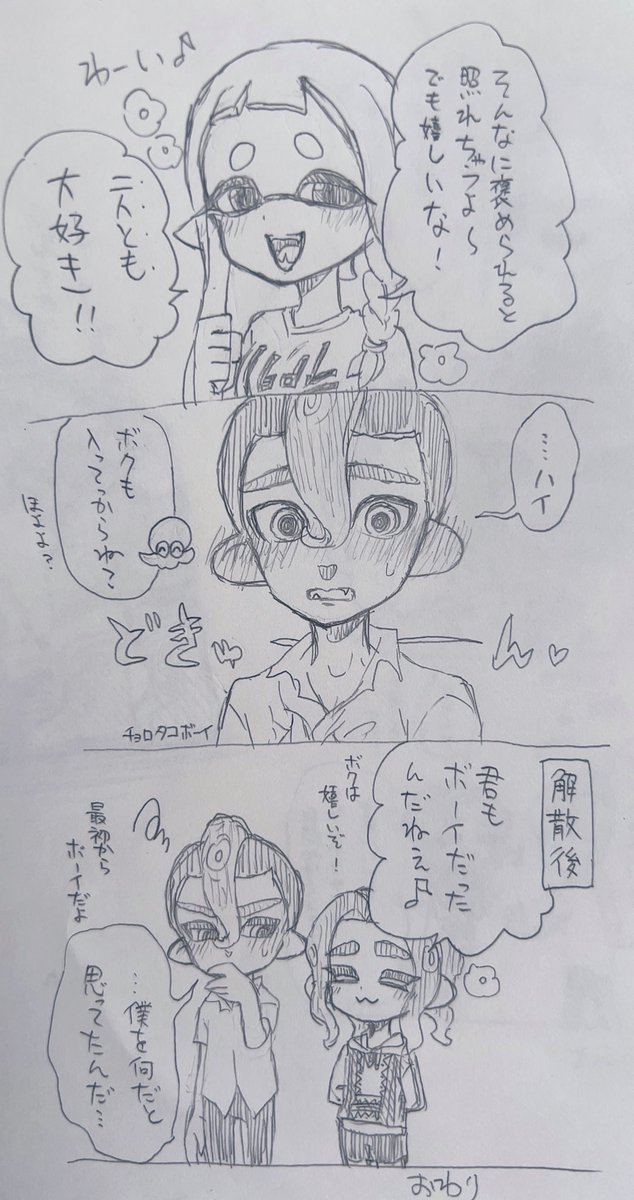 そんなに褒められると
照れちゃうよ〜
でも嬉しいな！
わーい♪
二人とも
大好き!!
……ハイ
ボクも
入ってっからね？
ほよよ？
どきゅん♡
チョロタコボーイ
解散後
君も
ボーイだった
んだねぇ♪
ボクは
嬉しいぞ！
最初から
ボーイだよ
…僕を何だと
思ってたんだ…
おわり